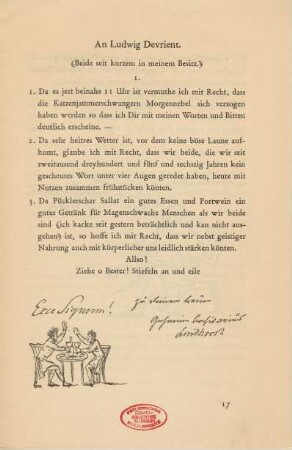 An Ludwig Devrient.
(Beide seit kurzem in meinem Besitz.)
1.
1. Da es jezt beinahe 11 Uhr ist vermuthe ich mit Recht, dass
die Katzenjammerschwangern Morgennebel sich verzogen
haben werden so dass ich Dir mit meinen Worten und Bitten
deutlich erscheine. —
2. Da sehr heitres Wetter ist, vor dem keine böse Laune auf-
komt, glaube ich mit Recht, dass wir beide, die wir seit
zweitausend dreyhundert und fünf und sechszig Jahren kein
gescheutes Wort unter vier Augen geredet haben, heute mit
Nutzen zusammen frühstücken könten.
3. Da Pücklerscher Sallat ein gutes Essen und Portwein ein
gutes Getränk für Magenschwache Menschen als wir beide
sind (ich kacke seit gestern beträchtlich und kan nicht aus-
gehen) ist, so hoffe ich mit Recht, dass wir nebst geistiger
Nahrung auch mit körperlicher uns leidlich stärken könten.
Allso!
Ziehe o Bester! Stiefeln an und eile
Ecce Signum!
zu Deinem
Geheimen Archivarius
Lindhorst
17